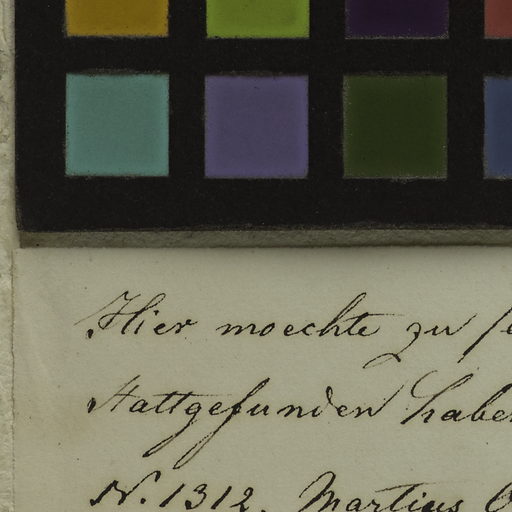 Hier moechte zu
stattgefunden haben
N. 1312. Martius